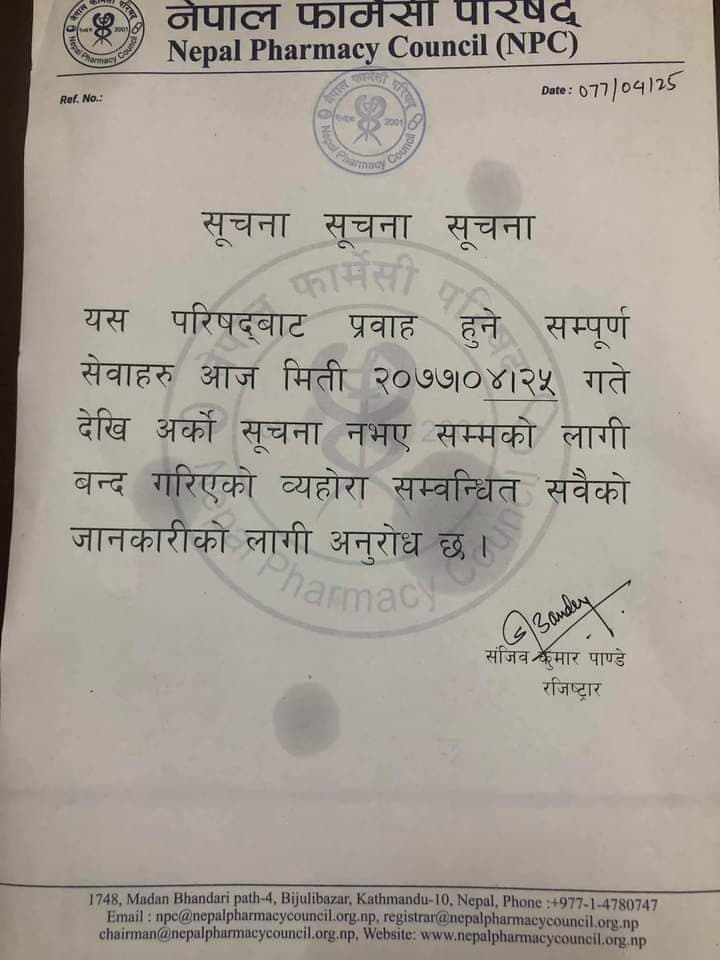 नेपाल फार्मेसी परिषद्
Nepal Pharmacy Council (NPC)
Ref. No.:
Date : 077/04/25
नेपाल फार्मेसी परिषद
2001
Nepal Pharmacy Council
सूचना सूचना सूचना
यस परिषद्बाट प्रवाह हुने सम्पूर्ण
सेवाहरु आज मिती २०७७।०४।२५ गते
देखि अर्को सूचना नभए सम्मको लागी
बन्द गरिएको व्यहोरा सम्वन्धित सवैको
जानकारीको लागी अनुरोध छ ।
संजिव कुमार पाण्डे
रजिष्ट्रार
1748, Madan Bhandari path-4, Bijulibazar, Kathmandu-10, Nepal, Phone :+977-1-4780747
Email : npc@nepalpharmacycouncil.org.np, registrar@nepalpharmacycouncil.org.np
chairman@nepalpharmacycouncil.org.np, Website: www.nepalpharmacycouncil.org.np